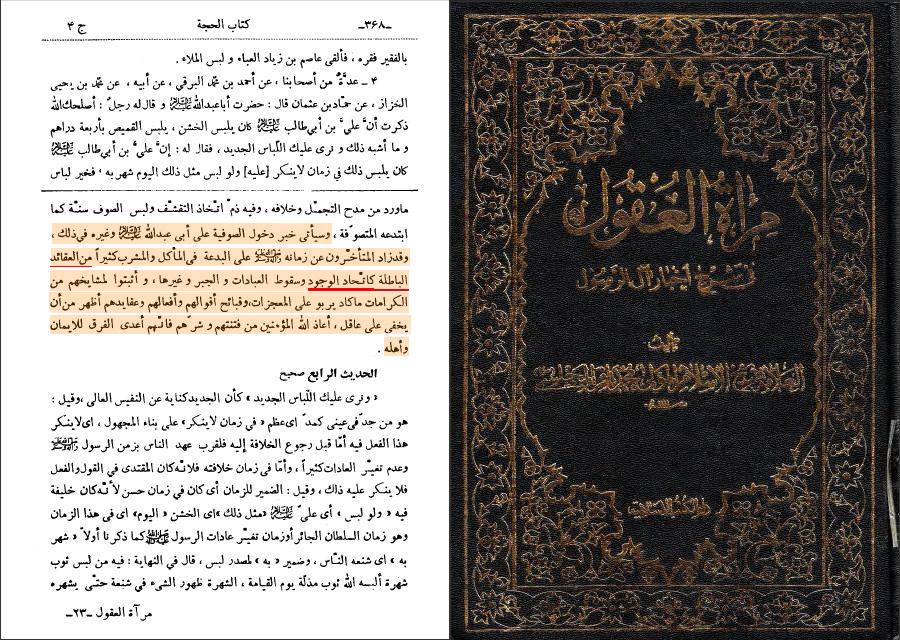 ـ۳۶۸ـ
كتاب الحجة
ج ۴
بالفقير فقره ، فألقى عاصم بن زياد العباء و لبس الملاء .
۴ ـ عدَّةٌ من أصحابنا ، عن أحمد بن محمّد البرقي ، عن أبيه ، عن محمّد بن يحيى
الخزاز ، عن حمّاد بن عثمان قال : حضرت أبا عبدالله عليه السلام و قال له رجلٌ : أصلحك الله
ذكرت أنَّ عليَّ بن أبي طالب عليه السلام كان يلبس الخشن ، يلبس القميص بأربعة دراهم
و ما أشبه ذلك و نرى عليك اللّباس الجديد ، فقال له : إنَّ عليَّ بن أبي طالب عليه السلام
كان يلبس ذلك في زمان لاينكر [عليه] ولو لبس مثل ذلك اليوم شهر به ، فخير لباس
ماورد من مدح التجمّل وخلافه ، وفيه ذمّ اتّخاذ التقشّف ولبس الصوف سنّة كما
ابتدعه المتصوّفة ، وسيأتي خبر دخول الصوفية على أبي عبدالله عليه السلام وغيره في ذلك ،
وقدزاد المتأخّرون عن زمانه على البدعة في المأكل والمشرب كثيراً من العقائد
الباطلة كاتّحاد الوجود وسقوط العبادات و الجبر و غيرها ، و أثبتوا لمشايخهم من
الكرامات ماكاد يربو على المعجزات، وقبائح أقوالهم وأفعالهم وعقايدهم أظهر من أن
يخفى على عاقل ، أعاذ الله المؤمنين من فتنتهم و شرّهم فانّهم أعدى الفرق للايمان
وأهله .
الحديث الرابع صحيح
« ونرى عليك اللّباس الجديد » كأن الجديدكناية عن النفيس العالى ، وقيل :
هو من جدّ في عينى كمدّ اى عظم « في زمان لاينكر» على بناء المجهول ، اى لاينكر
هذا الفعل فيه أمّا قبل رجوع الخلافة إليه فلقرب عهد الناس بزمن الرسول
وعدم تغيّر العادات كثيراً ، وأمّا في زمان خلافته فلانّه كان المقتدى في القول والفعل
فلا ينكر عليه ذاك ، وقيل : الضمير للزمان أى كان في زمان حسن لأنّه كان خليفة
فيه « ولو لبس » أى علىّ عليه السلام «مثل ذلك» اى الخشن « اليوم» اى فى هذا الزمان
وهو زمان السلطان الجائر أوزمان تغيّر عادات الرسول كما ذكرنا أولاً « شهر
به » اى شنعه النّاس ، وضمير « به » لمصدر لبس ، قال في النهاية : فيه من لبس ثوب
شهرة ألبسه الله ثوب مذلّة يوم القيامة ، الشهرة ظهور الشيء في شنعة حتّى يشهره
مرآة العقول ـ۲۳ـ
مرآة العقول
في شرح أخبار آل الرسول
تأليف
دار الكتب الاسلامية